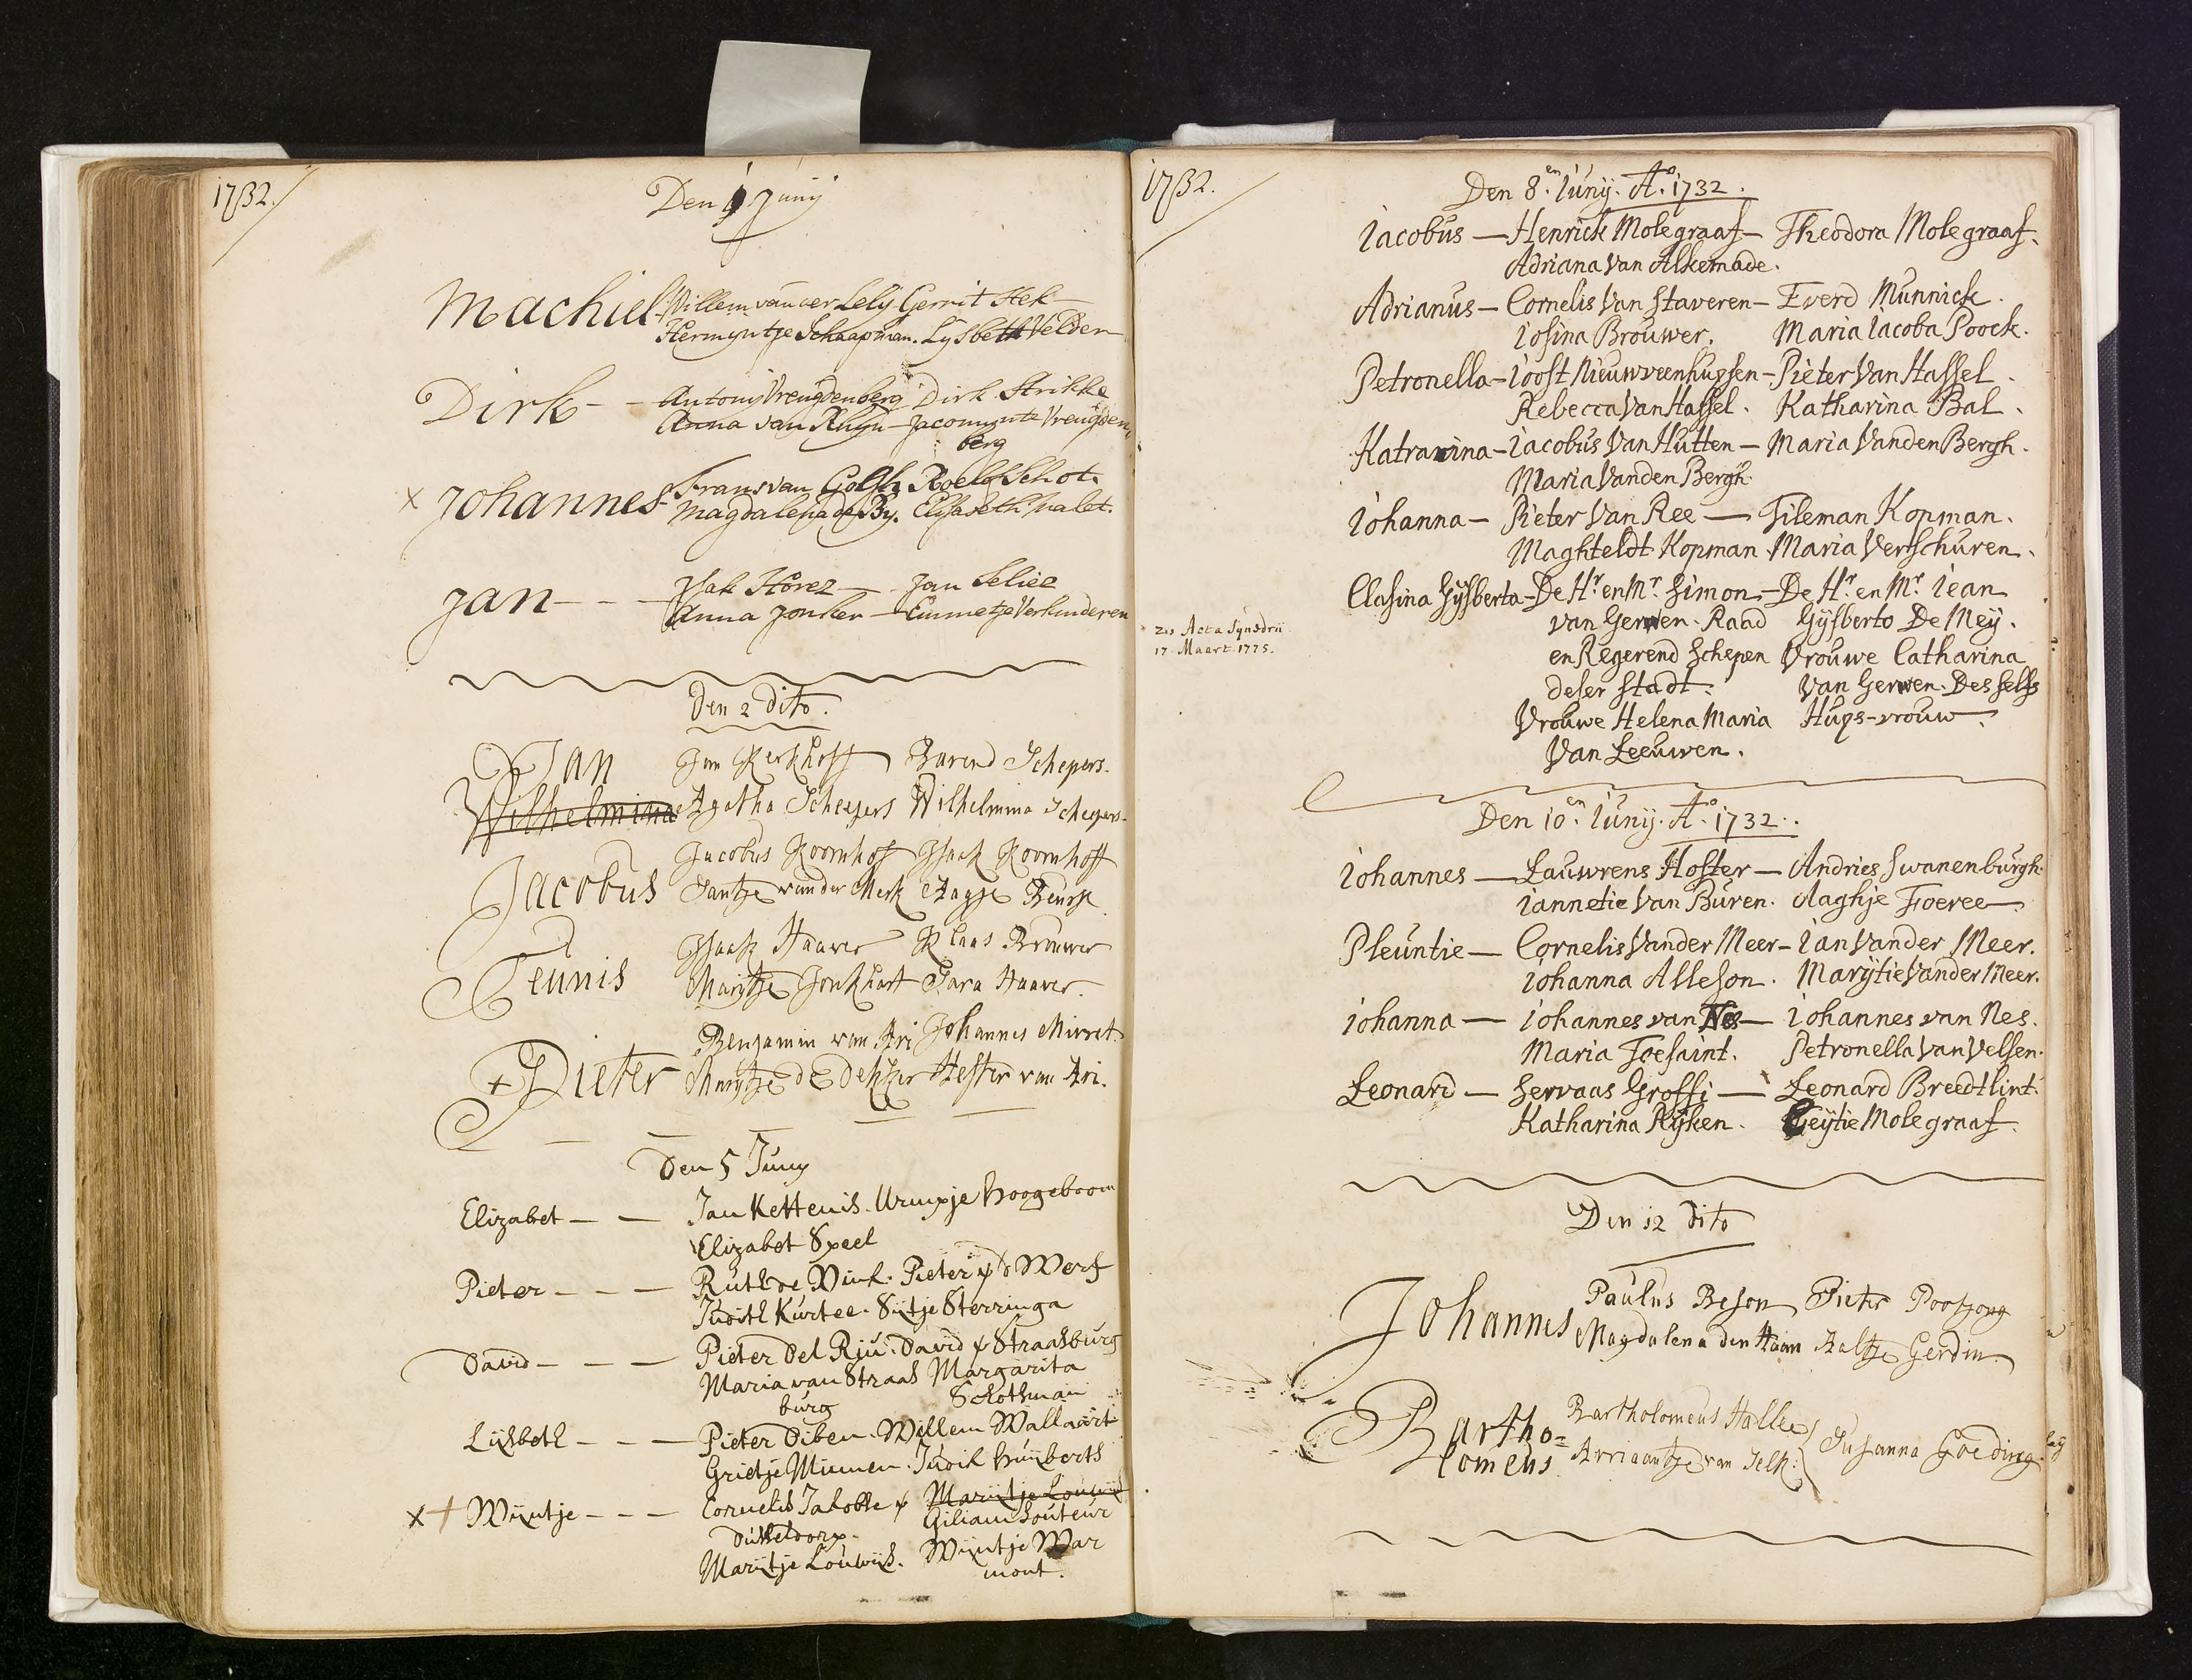 1732.
Den 1 Junij
Machiel Willem vander Lely Gerrit Hek
Hermyntje Schaapman. Lysbeth Velden
Dirk - - Antony Vreugdenberg Dirk Strikke
Anna van Rhyn - Jacomyntie Vreugden
berg
x Johannes Frans van Roelof Schot.
Magdalena de By. Elisabeth
Jan - - - Isak Horez - Jan Seliee
Anna Jonker - Emmetje Verkinderen
Den 2 dito.
Jan Jan Kerkhoff Barend Schepers.
Wilhelmina Agatha Schepers Wilhelmina Schepers.
Jacobus Jacobus Roomhof Isaak Roomhoff
Jantje van der Merk Aagje Beurse
Teunis Isaak Haaver Klaas Brouwer
Marijtje Jonkhart Sara Haaver.
Benjamin van Ari Johannes Mirret
+ Pieter Marijtje de Dekker Hester van Ari.
Den 5 Juny
Elizabet - - Jan Kettenis. Hoogeboom
Elizabet Speel
Pieter - - - Ruth de Vink. Pieter vd Werf
Judith Kurtee. Sijtje Sterringa
David - - - Pieter Del Rju. David v Straasburg
Maria van Straas Margarita
burg Schotsman
Lijsbeth - - - Pieter Diben. Willem Wallaart
Grietje Minnen. Judik Huijberts
x + Wijntje - - - Cornelis Jakobse v Marijtje Louwijs
Dusseldorp. Giliam Souteur
Marijtje Louwijs. Wijntje War
mont.
1732.
Den 8.en Iunij. Ao. 1732.
Iacobus — Henrick Molegraaf — Theodora Molegraaf.
Adriana Van Alkemade.
Adrianus — Cornelis Van Staveren — Everd Munnick.
Iosina Brouwer. Maria Iacoba Poock.
Petronella — Ioost Nieuwveenhuysen — Pieter Van Hassel.
Rebecca Van Hassel. Katharina Bal.
Katrarina — Iacobus Van Hutten — Maria Vanden Bergh.
Maria Vanden Bergh.
Iohanna — Pieter Van Ree — Tileman Kopman.
Maghteldt Kopman. Maria Verschuren.
Clasina Gijsberta — De Hr. en Mr. Simon — De Hr. en Mr. Iean
van Gerwen. Raad Gijsberto De Meij.
en Regerend Schepen Vrouwe Catharina
deser Stadt. Van Gerwen. Desselfs
Vrouwe Helena Maria Huys-vrouw.
Van Leeuwen.
Acta Synedrii
17 Maart 1775.
Den 10.en Iunij. Ao. 1732.
Iohannes — Lauwrens Hoster — Andries Swanenburgh.
Iannetie Van Buren. Aaghje Foeree.
Pleuntie — Cornelis Vander Meer — Ian Vander Meer.
Iohanna Alleson. Marijtie Vander Meer.
Iohanna — Iohannes van Nes — Iohannes van Nes.
Maria Toesaint. Petronella Van Velsen.
Leonard — Servaas Grossi — Leonard Breedtlint.
Katharina Rijken. Geijtie Molegraaf.
Den 12 dito
Johannes Paulus Beson Pieter
Magdalena den Haan Aaltje Gerdin.
Bartho= Bartholomeus Hallee
lomeus Arriaantje van Susanna Goeding